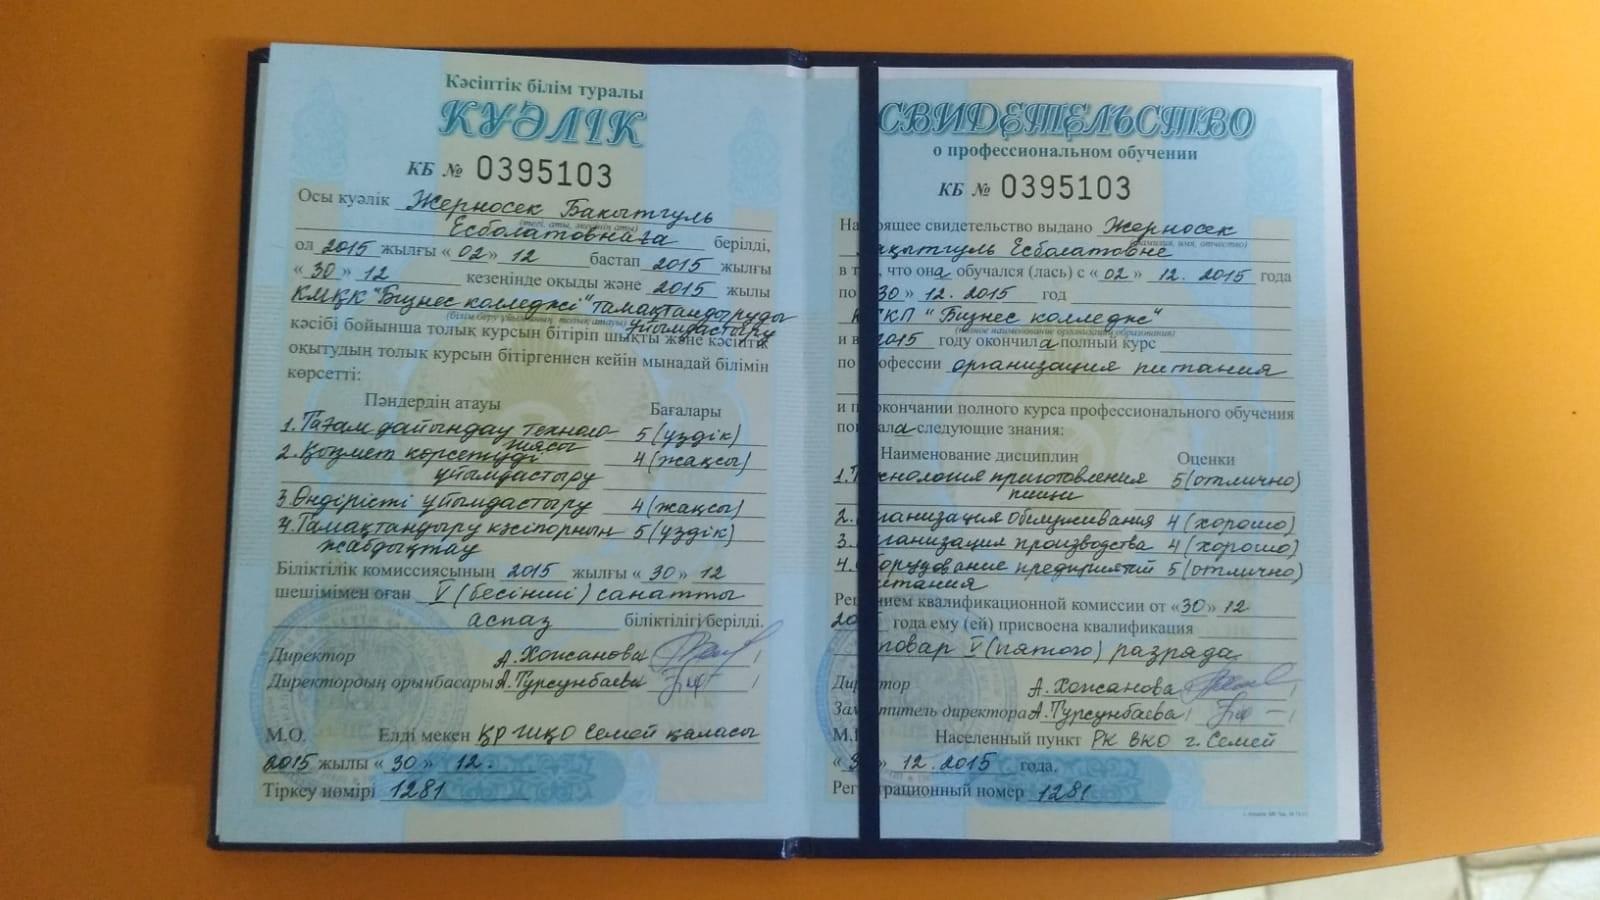 Кәсіптік білім туралы
КУӘЛІК
КБ № 0395103
Осы куәлік Жерносек Бакытгуль
(тегі, аты, әкесінің аты)
Есболатовнаға берілді,
ол 2015 жылғы «02» 12 бастап 2015 жылғы
«30» 12 кезеңінде оқыды және 2015 жылы
КМҚК "Бизнес колледжі" тамақтандыруды
(білім беру ұйымының толық атауы) ұйымдастыру
кәсібі бойынша толық курсын бітіріп шықты және кәсіптік
оқытудың толық курсын бітіргеннен кейін мынадай білімін
көрсетті:
Пәндердің атауы Бағалары
1. Тағам дайындау техноло 5 (үздік)
гиясы
2. Қызмет көрсетуді 4 (жақсы)
ұйымдастыру
3. Өндірісті ұйымдастыру 4 (жақсы)
4. Тамақтандыру кәсіпорнын 5 (үздік)
жабдықтау
Біліктілік комиссиясының 2015 жылғы «30» 12
шешімімен оған V (бесінші) санатты
аспаз біліктілігі берілді.
Директор А. Хожсанова
Директордың орынбасары А. Турсунбаева
М.О. Елді мекен ҚР ШҚО Семей қаласы
2015 жылы «30» 12.
Тіркеу нөмірі 1281
СВИДЕТЕЛЬСТВО
о профессиональном обучении
КБ № 0395103
На оящее свидетельство выдано Жерносек
(фамилия, имя, отчество)
ақытгуль Есболатовне
в т , что она обучался (лась) с «02» 12. 2015 года
по 30» 12. 2015 год
К КП "Бизнес колледж"
(полное наименование организации образования)
и в 2015 году окончила полный курс
по фессии организация питания
и п окончании полного курса профессионального обучения
по ала следующие знания:
Наименование дисциплин Оценки
1. Т хнология приготовления 5 (отлично)
пищи
2. рганизация обслуживания 4 (хорошо)
3. рганизация производства 4 (хорошо)
4. борудование предприятий 5 (отлично)
итания
Реш нием квалификационной комиссии от «30» 12
20 года ему (ей) присвоена квалификация
повар V (пятого) разряда
Дир ктор А. Хожсанова
Зам титель директора А. Турсунбаева
М. Населенный пункт РК ВКО г. Семей
«3 » 12. 2015 года.
Рег трационный номер 1281